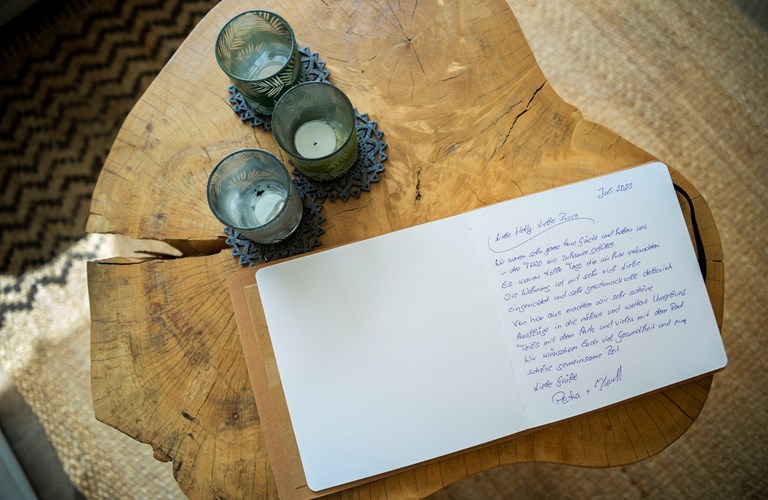 2023
Liebe Helga, lieber
Wir waren sehr gerne Eure Gäste und haben uns
in der wie zuhause gefühlt.
Es waren tolle Tage die wir hier verbrachten
Die Wohnung ist mit sehr viel Liebe
eingerichtet und sehr geschmackvoll dekoriert
Von hier aus machten wir sehr schöne
Ausflüge in die nähere und weitere Umgebung
Teils mit dem Auto und vieles mit dem Rad
Wir wünschen Euch viel Gesundheit und eine
schöne gemeinsame Zeit.
Liebe Grüße
Petra +